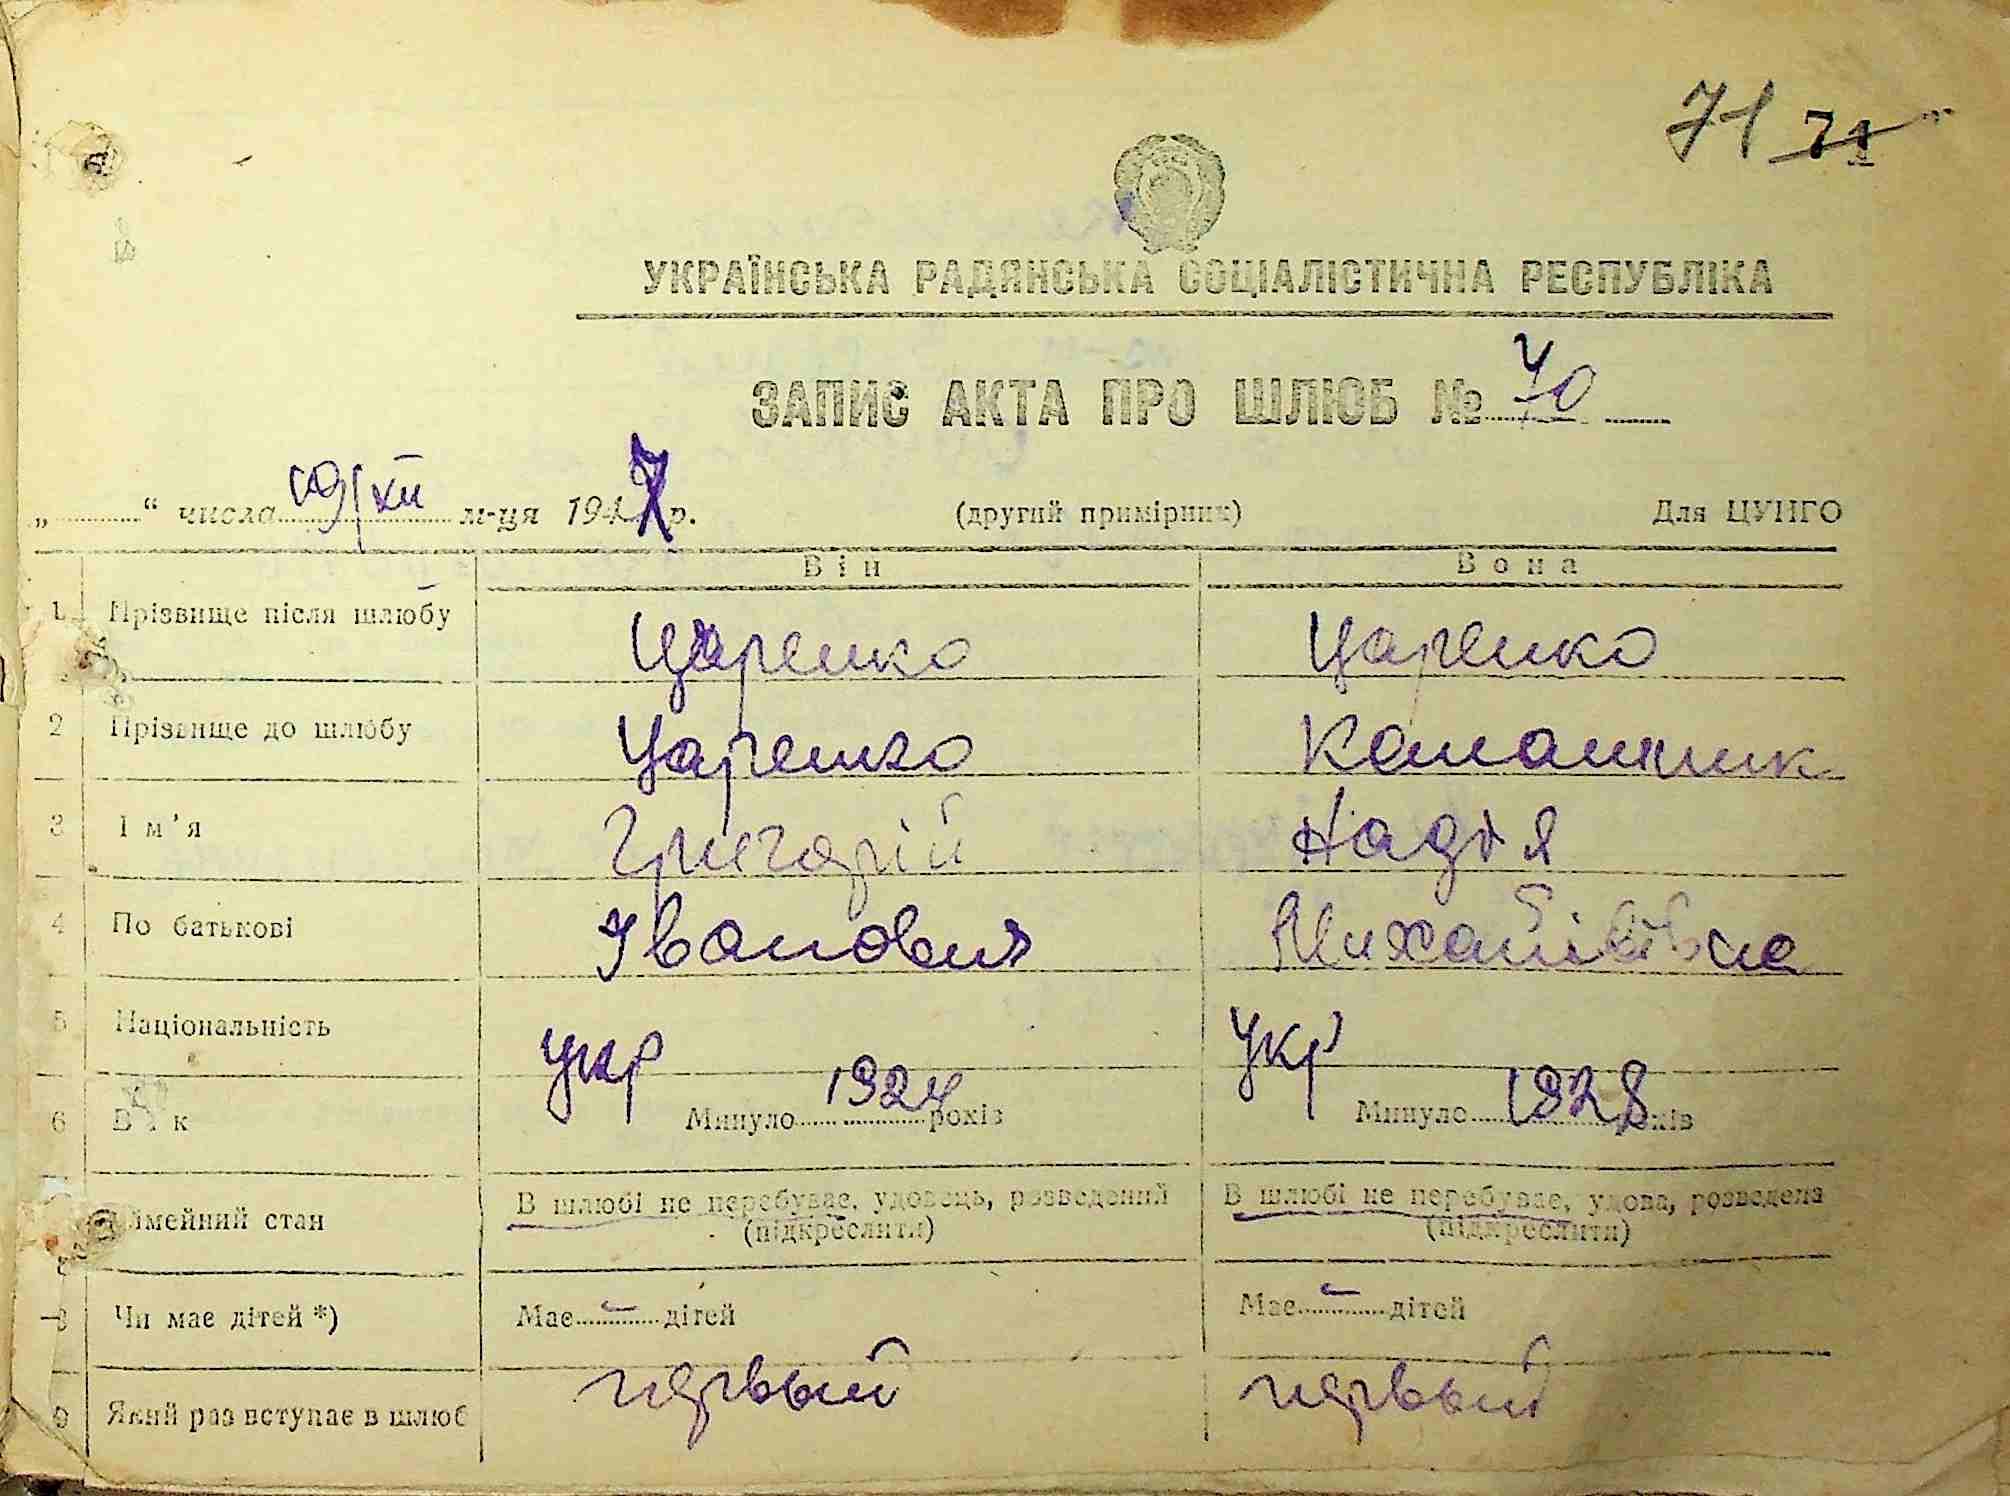 71 71
УКРАЇНСЬКА РАДЯНСЬКА СОЦІАЛІСТИЧНА РЕСПУБЛІКА
ЗАПИС АКТА ПРО ШЛЮБ № 40
„ “ числа 19/XII м-ця 1947 р. (другий примірник) Для ЦУНГО
Він Вона
1 Прізвище після шлюбу Царенко Царенко
2 Прізвище до шлюбу Царенко
3 Ім’я Григорій Надія
4 По батькові Іванович Михайлівна
5 Національність укр укр
6 Вік Минуло 1924 років Минуло 1928 років
Сімейний стан В шлюбі не перебуває, удовець, розведений В шлюбі не перебуває, удова, розведена
(підкреслити) (підкреслити)
8 Чи має дітей *) Має – дітей Має – дітей
9 Який раз вступає в шлюб первый первый